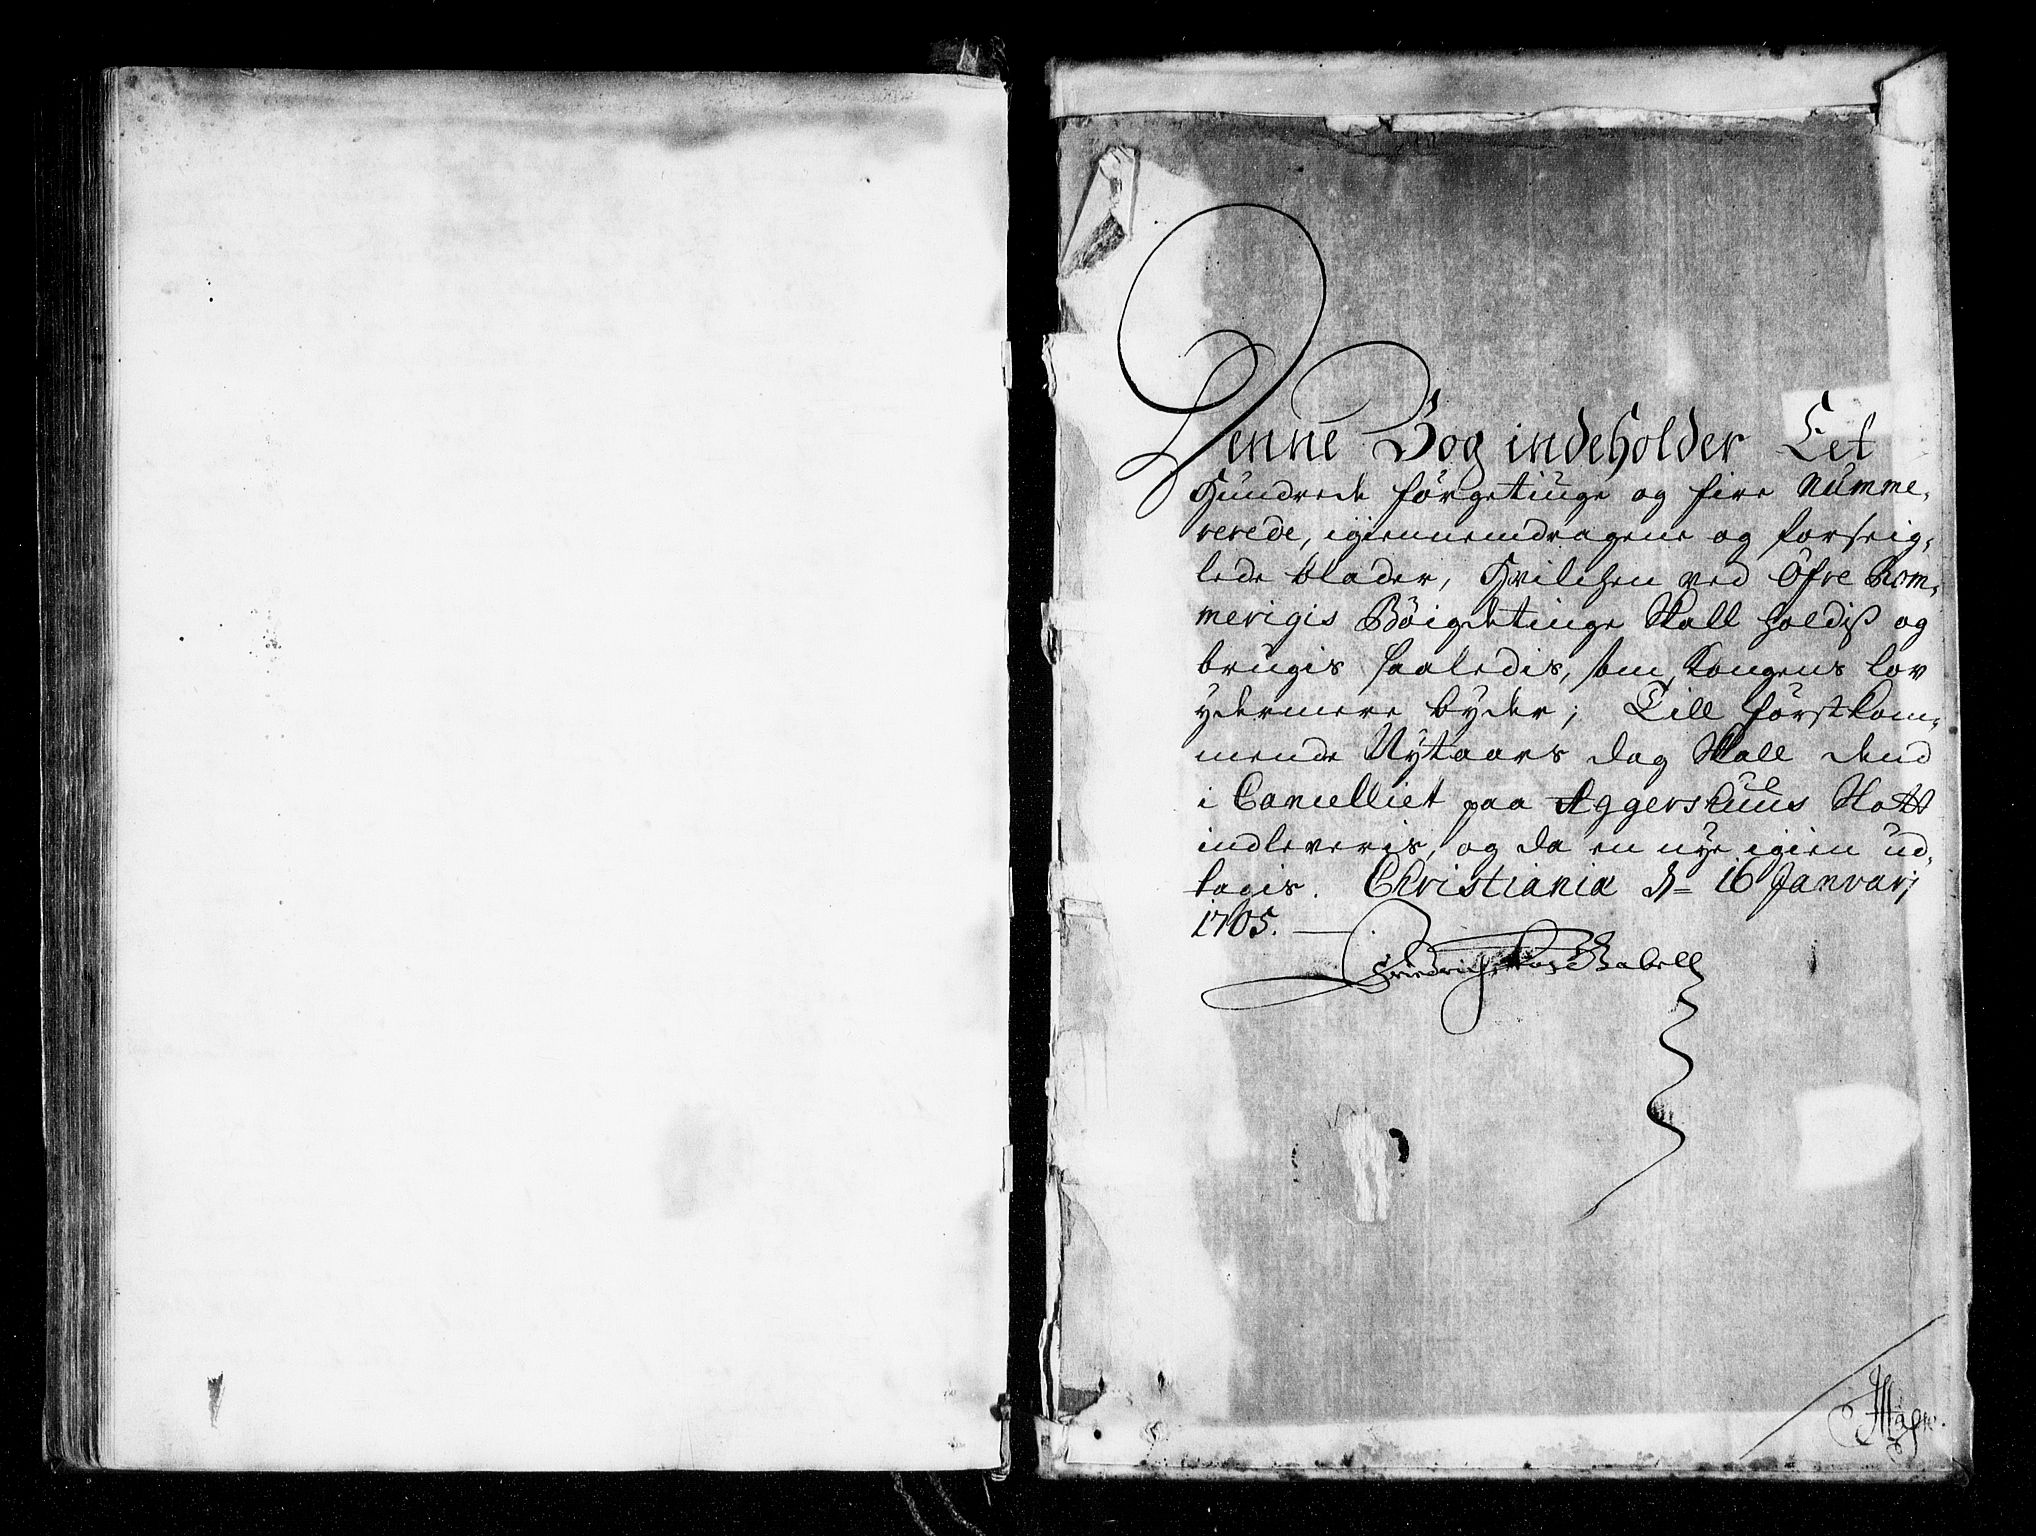 Denne Bog indeholder Eet
Hundrede förgetiuge og fire Numme,
rerede, igiennemdragene og forseig,
lede blader, Hvilchen ved Öfre Rom,
merigis Böigdetinge Skall holdis og
brugis saaledis, som Kongens lov
ydermere byder; Till först kom,
mende Nytaars dag Skall dend
i Cancelliet paa Aggershuus Slott
indleveris, og da en nye igien ud,
tagis. Christiania d. 16 Januarj
1705.
Gabell